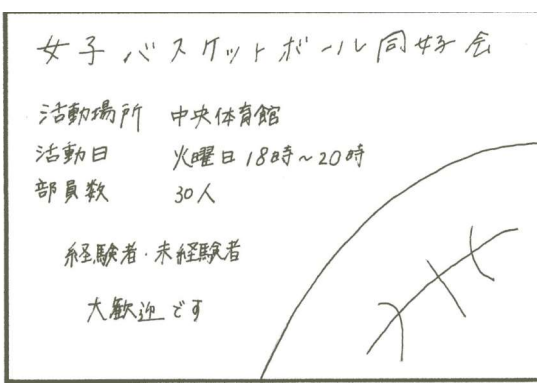 女子バスケットボール同好会
活動場所 中央体育館
活動日 火曜日18時～20時
部員数 30人
経験者・未経験者
大歓迎です